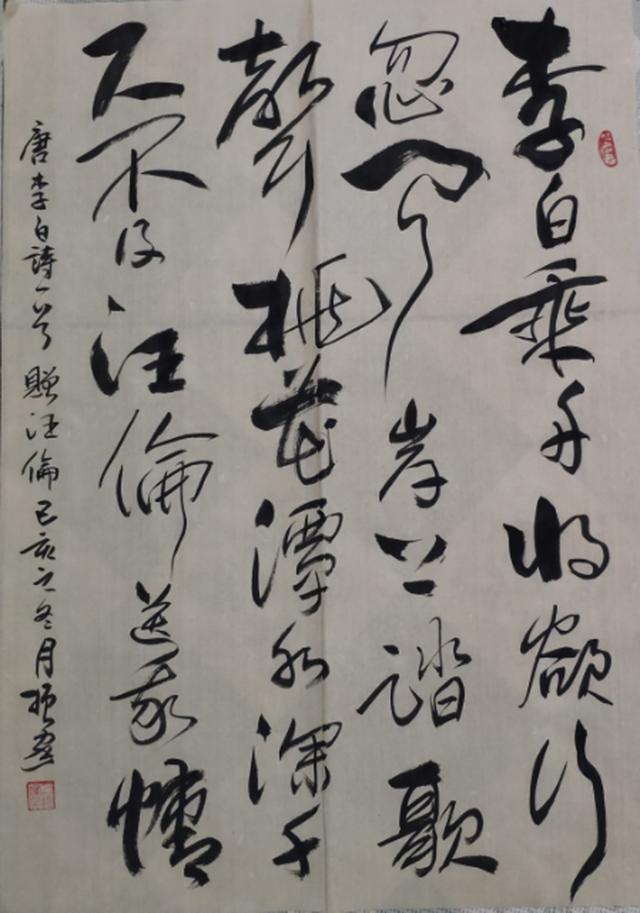 李白乘舟將欲行
忽聞岸上踏歌
聲桃花潭水深千
尺不及汪倫送我情
唐李白詩一首贈汪倫己亥之冬月